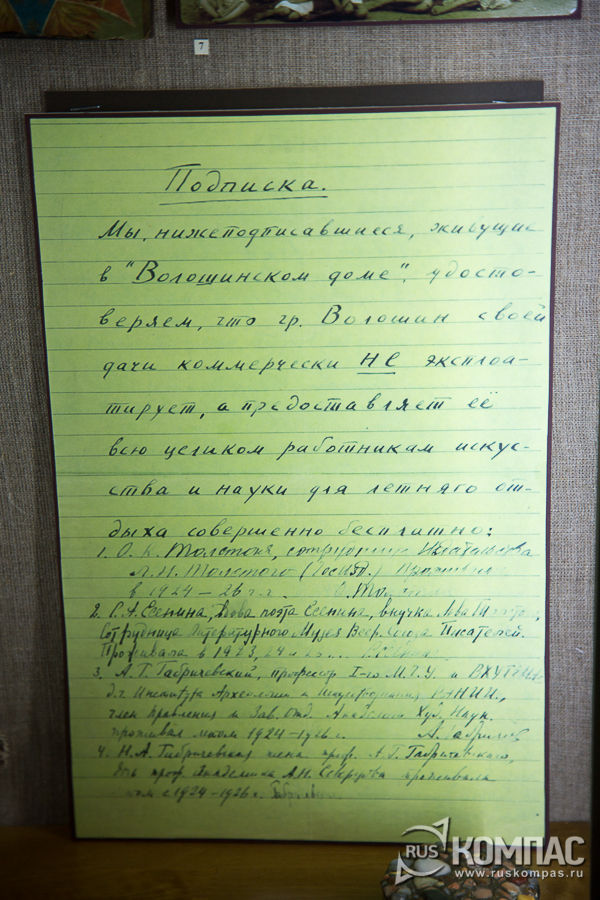 7
Подписка.
Мы, нижеподписавшиеся, живущие
в "Волошинском доме", удосто-
веряем, что гр. Волошин своей
дачи коммерчески не эксплоа-
тирует, а предоставляет её
всю целиком работникам искус-
ства и науки для летняго от-
дыха совершенно бесплатно:
1. О. К. Толстая, сотрудник Издательства
Л. Н. Толстого
в 1924 - 26 г.г.
2. С. А. Есенина, вдова поэта Есенина, внучка Льва
Сотрудница Литературного Музея Всер. Союза Писателей.
Проживала в 1923, 24 и
3. А. Г. Габричевский, профессор I-го М.Г.У. и
член Правления и Зав. Отд. Академии Худ. Наук.
проживал летом 1924 - 1926 г.
4. Н. А. Габричевская жена проф. А. Г. Габричевского,
дочь проф. Академика А. Н. Северцова проживала
с 1924 - 1926 г.
RUS КОМПАС
www.ruskompas.ru